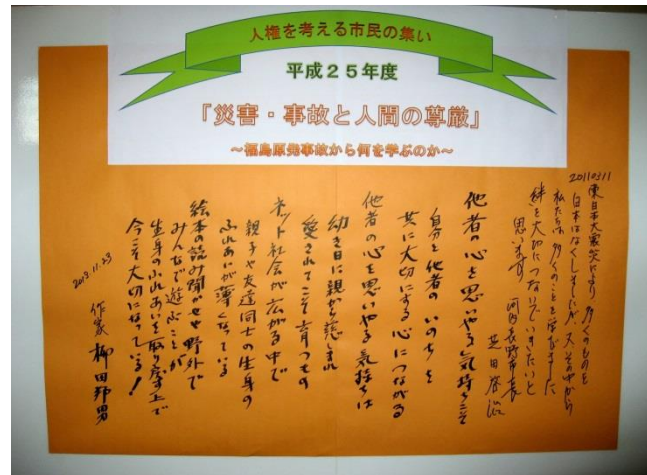 人権を考える市民の集い
平成25年度
「災害・事故と人間の尊厳」
～福島原発事故から何を学ぶのか～
20110311
東日本大震災により多くのものを
日本はなくしましたが、又その中から
私たちは多くのことを学びました
絆を大切につないでいきたいと
思います。
河内長野市長
芝田啓治
他者の心を思いやる気持ちこそ
自分と他者のいのちを
共に大切にする心につながる
他者の心を思いやる気持ちは
幼き日に親から慈しまれ
愛されてこそ育つもの
ネット社会が広がる中で
親子や友達同士の生身の
ふれあいが薄くなっている
絵本の読み聞かせや野外で
みんなで遊ぶことが
生身のふれあいを取り戻す上で
今こそ大切になっている！
2013.11.23
作家 柳田邦男